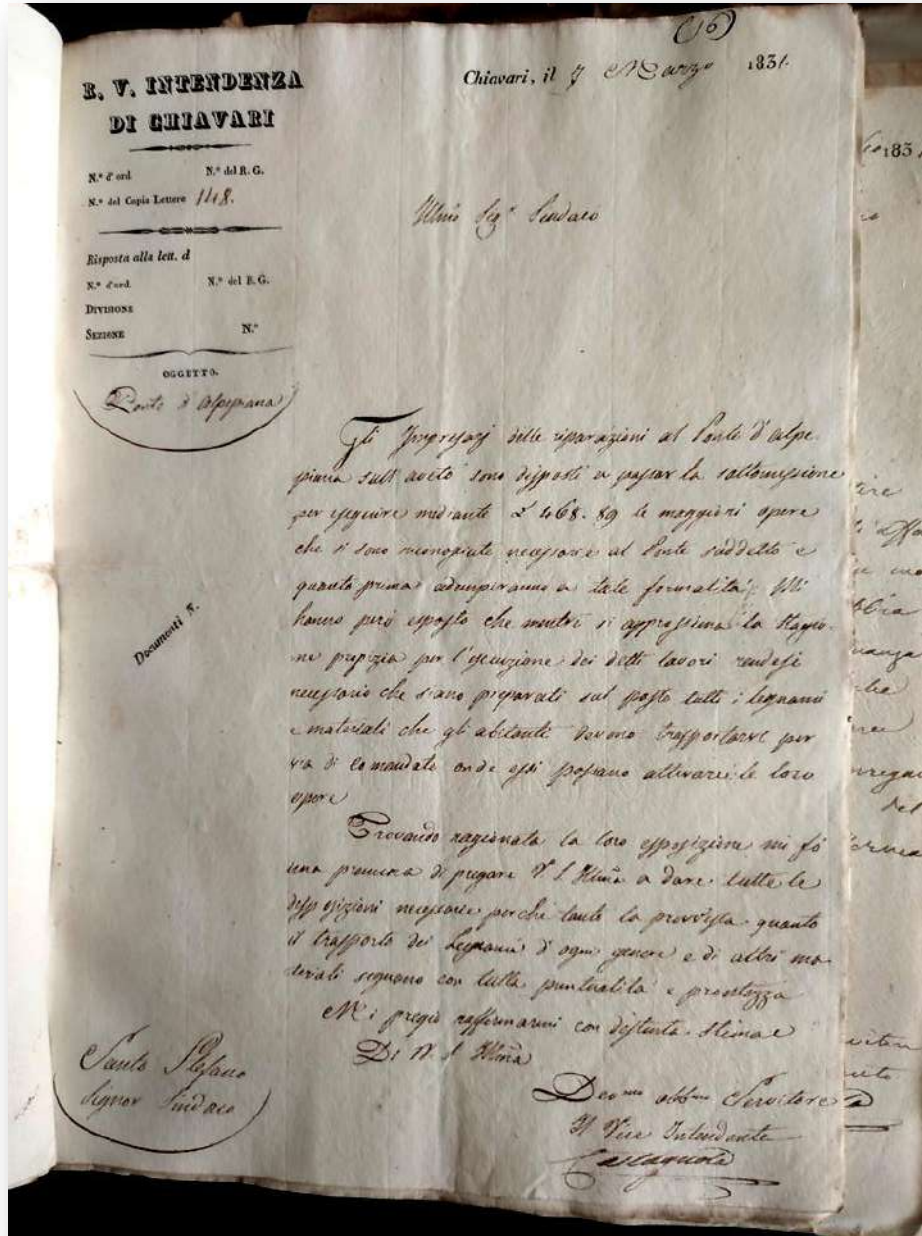 (16)
R. V. INTENDENZA
DI CHIAVARI
Chiavari, il 7 Marzo 1831.
N.º d'ord. N.º del R. G.
N.º del Copia Lettere 1118.
Risposta alla lett. d
N.º d'ord. N.º del R. G.
DIVISIONE
SEZIONE N.º
OGGETTO.
Ponte d'Alpepiana
Illmo Sigr Sindaco
Gli Impresarj delle riparazioni al Ponte d'Alpe
piana sull'aveto sono disposti a passar la sottomessione
per eseguire mediante £ 468.89 le maggiori opere
che si sono riconosciute necessarie al Ponte suddetto e
quanto prima adempiranno a tale formalità; Mi
hanno però esposto che mentre si approssima la Stagio-
ne propizia per l'esecuzione dei detti lavori rendesi
necessario che siano preparati sul posto tutti i legnami
e materiali che gli abitanti devono trasportarvi per
via di comandate onde essi possano attivare le loro
opere
Documenti N.
Trovando ragionata la loro esposizione mi fò
una premura di pregare V. S. Illma a dare tutte le
disposizioni necessarie perché tanto la provvista quanto
il trasporto dei Legnami d'ogni genere e di altri ma-
teriali seguano con tutta puntualità e prontezza
Mi pregio raffermarmi con distinta stima
Di V. S. Illma
Santo Stefano
Signor Sindaco
Devmo obbmo Servitore
Il Vice Intendente
Castagnola